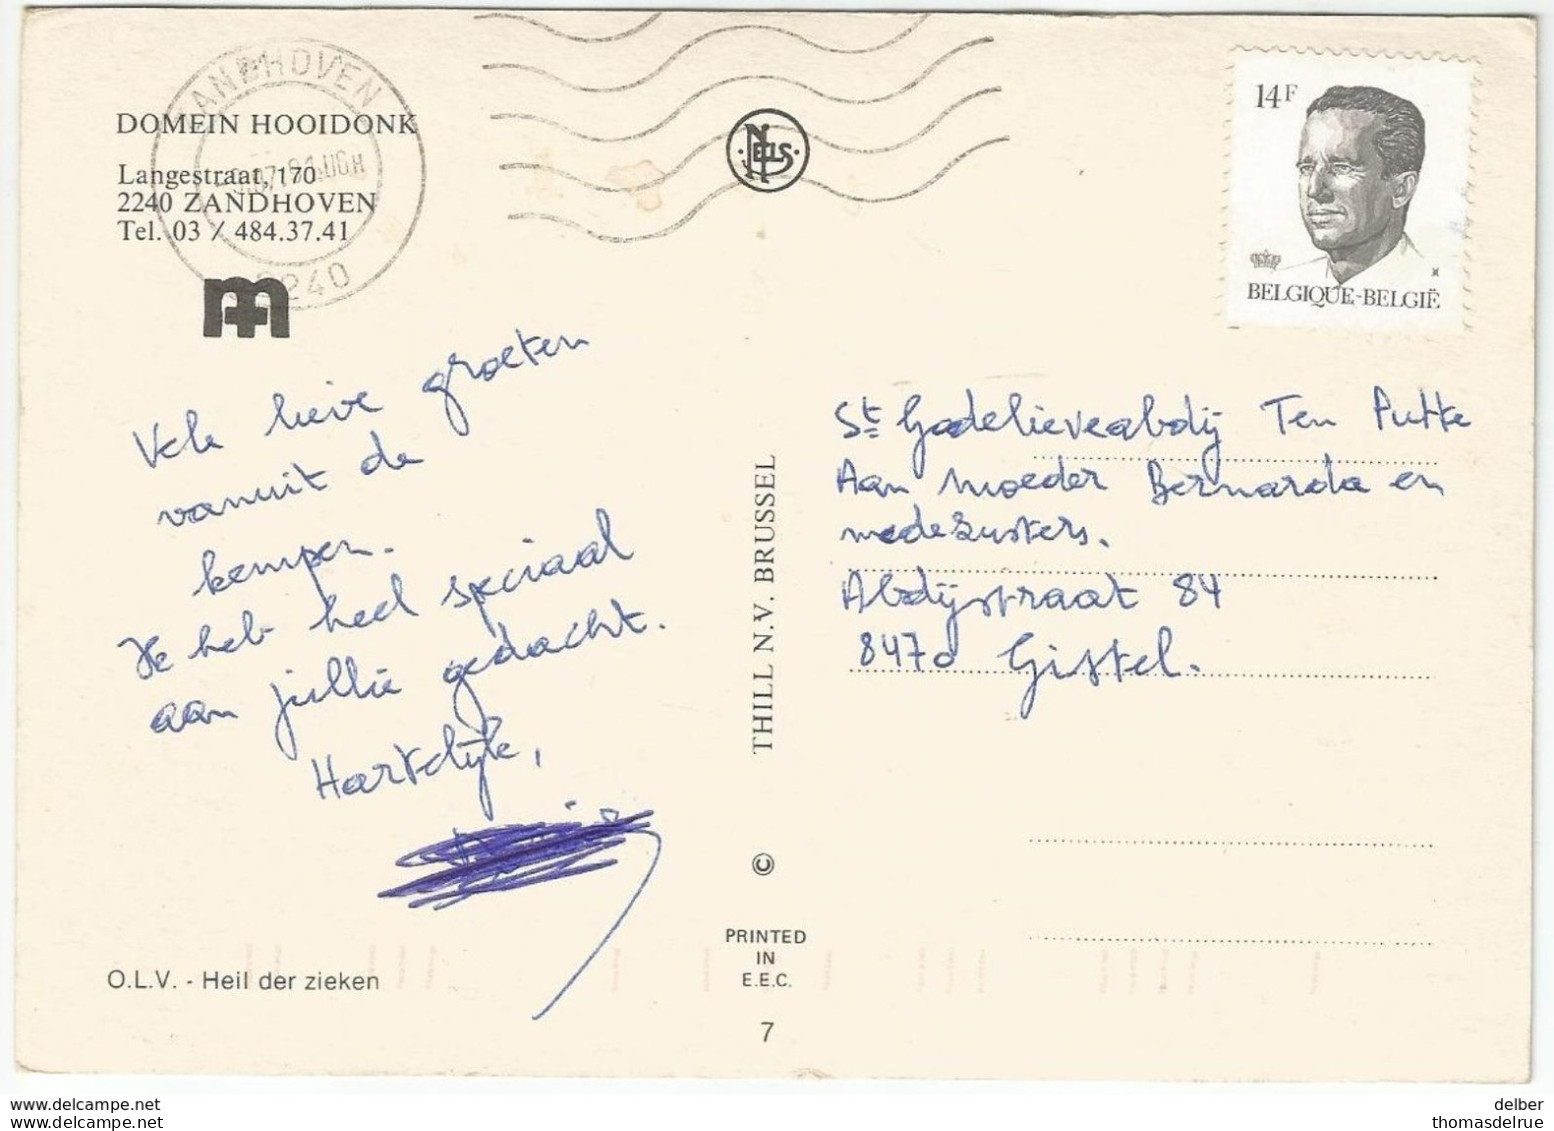 ZANDHOVEN
2240
DOMEIN HOOIDONK
Langestraat, 170
2240 ZANDHOVEN
Tel. 03 / 484.37.41
NELS
14F
BELGIQUE-BELGIË
Vele lieve groeten
vanuit de
kempen.
Ik heb heel speciaal
aan jullie gedacht.
Hartelijk,
O.L.V. - Heil der zieken
THILL N.V. BRUSSEL
©
PRINTED
IN
E.E.C.
7
St Godelieveabdij Ten Putte
Aan moeder Bernarda en
medezusters.
Abdijstraat 84
8470 Gistel.
delcampe.net
delber
thomasdelrue